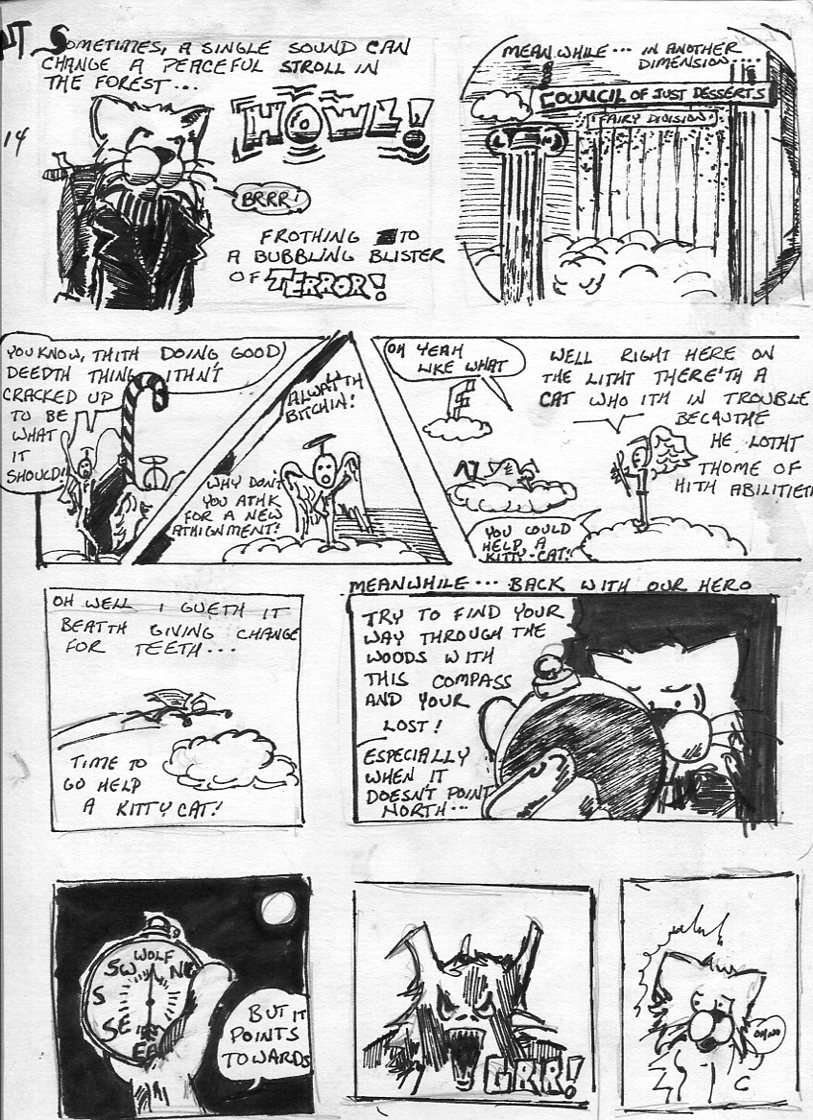 UT
14
SOMETIMES, A SINGLE SOUND CAN
CHANGE A PEACEFUL STROLL IN
THE FOREST...
HOWL!
BRRR!
FROTHING TO
A BUBBLING BLISTER
OF TERROR!
MEANWHILE... IN ANOTHER
DIMENSION....
COUNCIL OF JUST DESSERTS
FAIRY DIVISION
YOU KNOW, THITH DOING GOOD
DEEDTH THING ITHN'T
CRACKED UP
TO BE
WHAT
IT
SHOULD!
ALWAYTH
BITCHIN!
WHY DON'T
YOU ATHK
FOR A NEW
ATHIGNMENT!
OH YEAH
LIKE WHAT
WELL RIGHT HERE ON
THE LITHT THERE'TH A
CAT WHO ITH IN TROUBLE
BECAUTHE
HE LOTHT
THOME OF
HITH ABILITIETH
YOU COULD
HELP A
KITTY-CAT!
OH WELL I GUETH IT
BEATTH GIVING CHANGE
FOR TEETH...
TIME TO
GO HELP
A KITTY CAT!
MEANWHILE... BACK WITH OUR HERO
TRY TO FIND YOUR
WAY THROUGH THE
WOODS WITH
THIS COMPASS
AND YOUR
LOST!
ESPECIALLY
WHEN IT
DOESN'T POINT
NORTH...
WOLF
SW
NE
S
SE
BUT IT
POINTS
TOWARDS
GRR!
OH NO